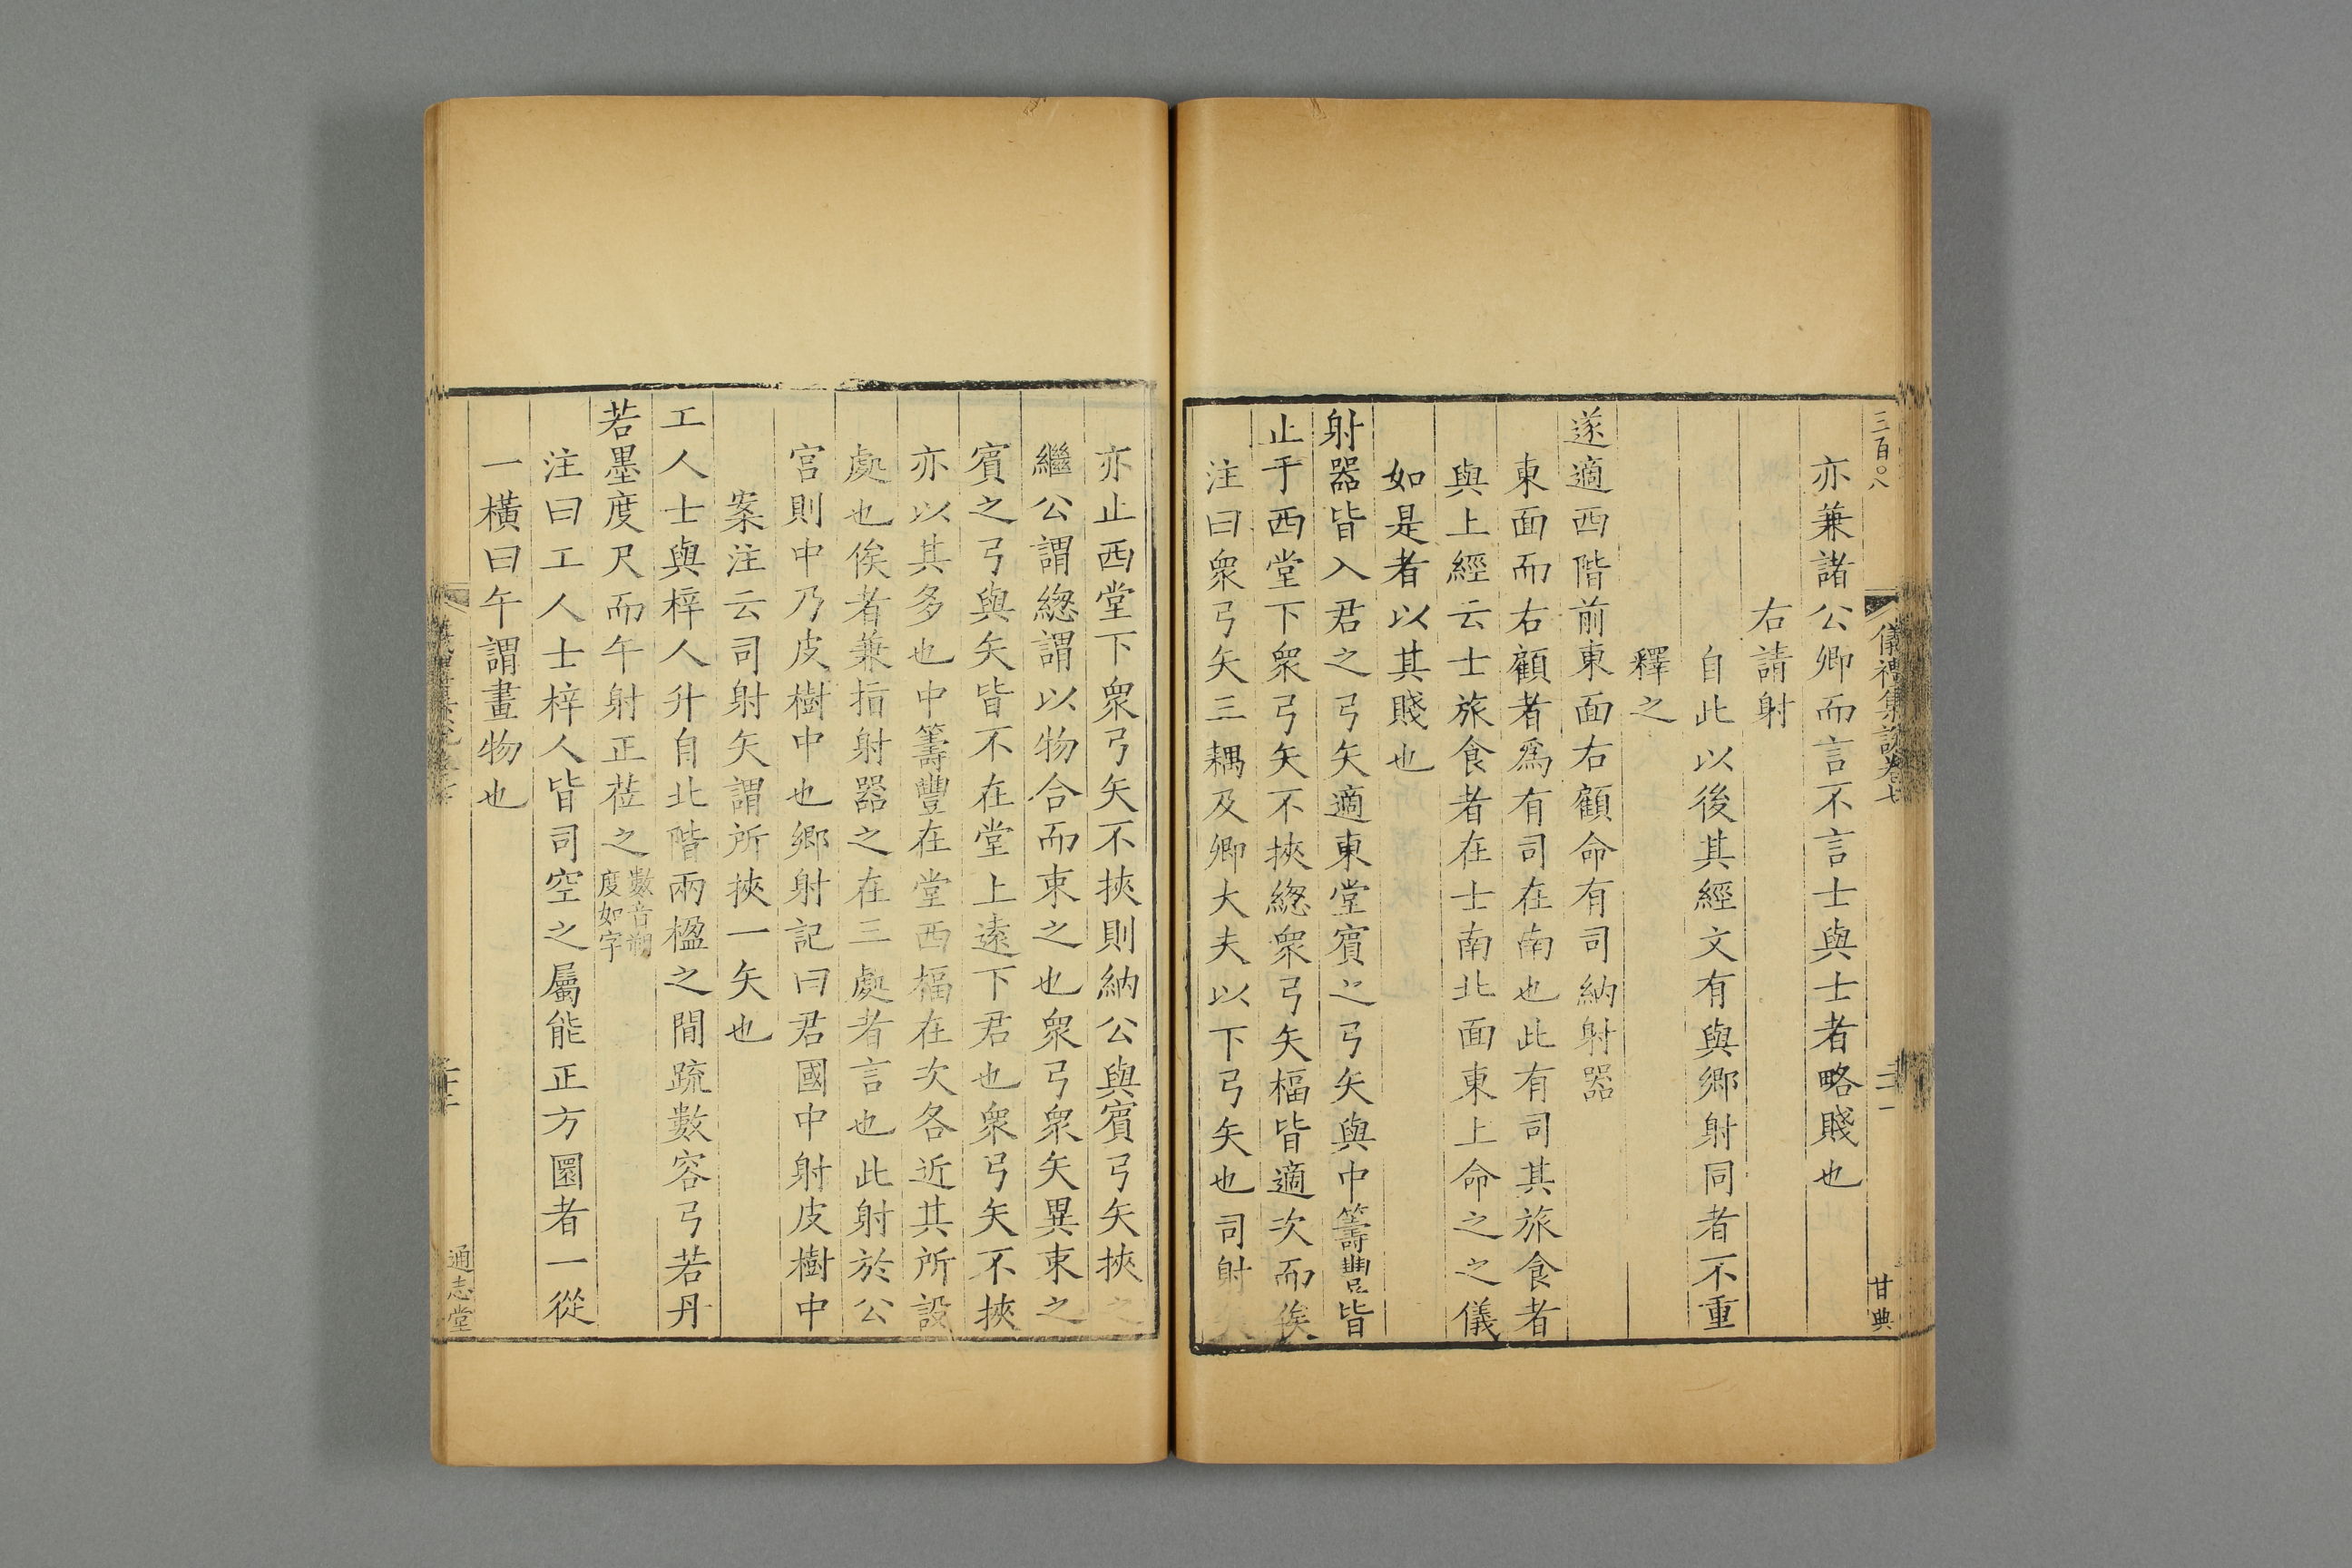 三百〇八
儀禮集說卷七
二一
甘典
亦兼諸公卿而言不言士與士者略賤也
右請射
自此以後其經文有與鄉射同者不重
釋之
遂適西階前東面右顧命有司納射器
東面而右顧者爲有司在南也此有司其旅食者
與上經云士旅食者在士南北面東上命之之儀
如是者以其賤也
射器皆入君之弓矢適東堂賓之弓矢與中籌豐皆
止于西堂下衆弓矢不挾緫衆弓矢楅皆適次而俟
注曰衆弓矢三耦及卿大夫以下弓矢也司射矢
亦止西堂下衆弓矢不挾則納公與賓弓矢挾之
繼公謂緫謂以物合而束之也衆弓衆矢異束之
賓之弓與矢皆不在堂上遠下君也衆弓矢不挾
亦以其多也中籌豐在堂西楅在次各近其所設
處也俟者兼指射器之在三處者言也此射於公
宮則中乃皮樹中也鄉射記曰君國中射皮樹中
案注云司射矢謂所挾一矢也
工人士與梓人升自北階兩楹之閒疏數容弓若丹
若墨度尺而午射正莅之數音朔度如字
注曰工人士梓人皆司空之屬能正方圜者一從
一橫曰午謂畫物也
通志堂